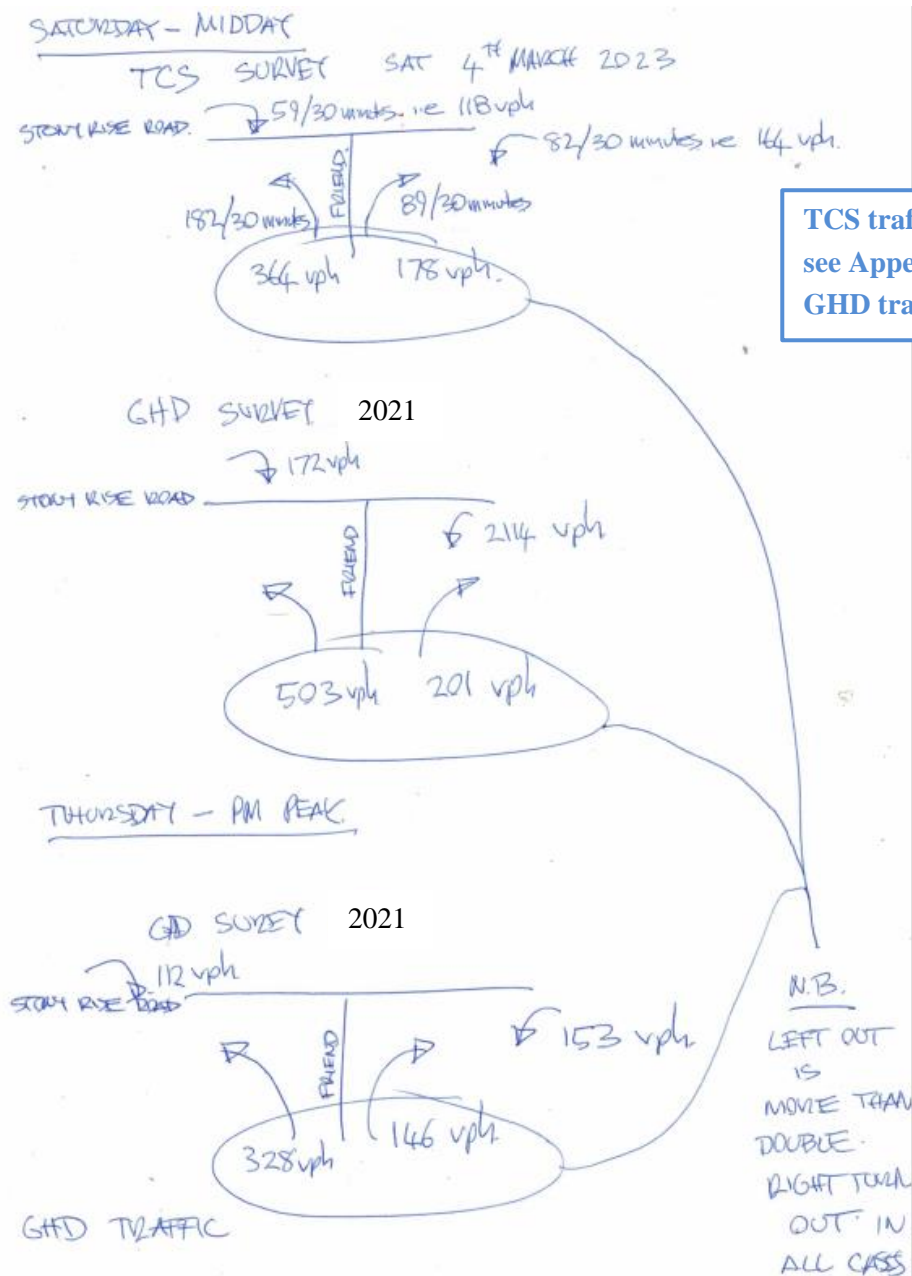 SATURDAY - MIDDAY
TCS SURVEY SAT 4TH MARCH 2023
59/30 minutes. ie 118 vph
STONY RISE ROAD.
82/30 minutes ie 164 vph.
FRIEND.
182/30 minutes
89/30 minutes
364 vph 178 vph.
TCS traf
see Appe
GHD tra
GHD SURVEY 2021
172 vph
STONY RISE ROAD
2114 vph
FRIEND
503 vph 201 vph
THURSDAY - PM PEAK.
GD SURVEY 2021
112 vph
STONY RISE ROAD
153 vph
FRIEND
328 vph 146 vph.
GHD TRAFFIC
N.B.
LEFT OUT
IS
MORE THAN
DOUBLE.
RIGHT TURN
OUT IN
ALL CASES